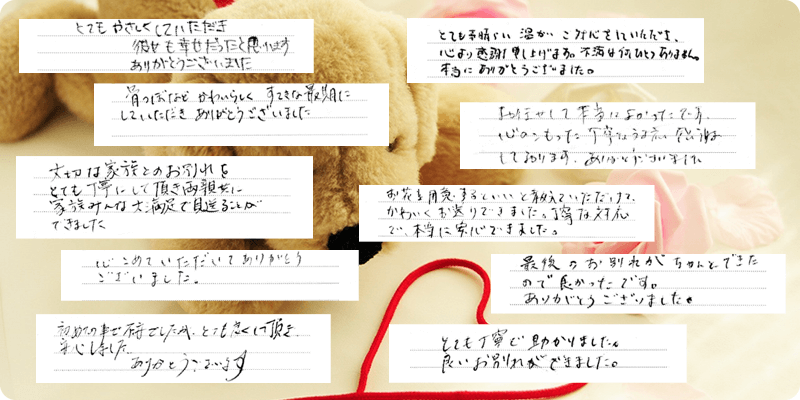 とてもやさしくしていただき
彼女も幸せだったと思います
ありがとうございました
骨つぼなど かわいらしく すてきな最期に
していただき ありがとうございました
大切な家族とのお別れを
とても丁寧にして頂き両親共に
家族みんな大満足で見送ることが
できました
心こめていただいてありがとう
ございました。
初めての事で不安でしたが、とても良くして頂き
安心しました
ありがとうございます
とても素晴らしい 温かい こみ心をしていただき、
心より感謝申し上げます。不満は何ひとつありません。
本当にありがとうございました。
お任せして本当によかったです。
心のこもった丁寧な
しております。ありがとうございました
お花を用意するといいと教えていただけて、
かわいくお送りできました。丁寧な対応
で、本当に安心できました。
最後のお別れが ちゃんとできた
ので良かったです。
ありがとうございました。
とても丁寧で助かりました。
良いお別れができました。